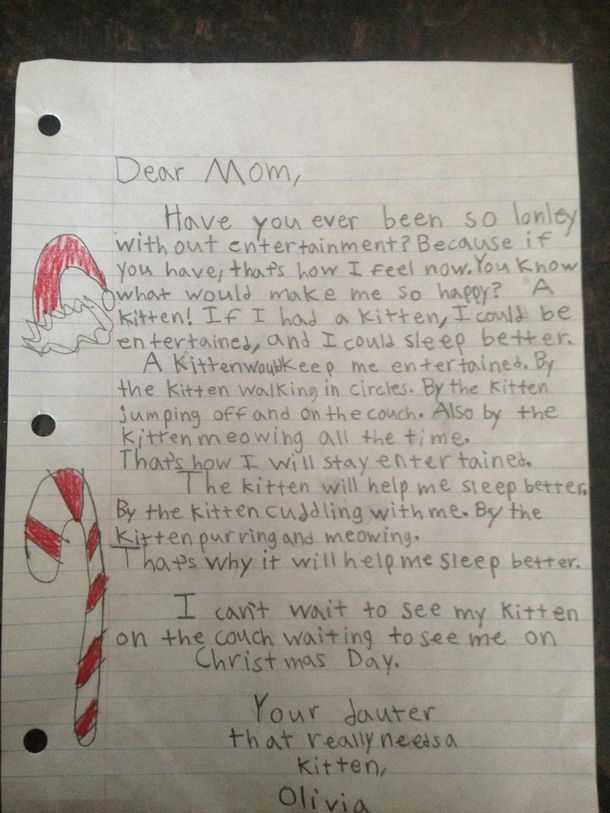 Dear Mom,
Have you ever been so lonley
without entertainment? Because if
you have, that's how I feel now. You know
what would make me so happy? A
kitten! If I had a kitten, I could be
entertained, and I could sleep better.
A kitten would keep me entertained. By
the kitten walking in circles. By the kitten
jumping off and on the couch. Also by the
kitten meowing all the time.
That's how I will stay entertained.
The kitten will help me sleep better.
By the kitten cuddling with me. By the
kitten purring and meowing.
That's why it will help me sleep better.
I can't wait to see my kitten
on the couch waiting to see me on
Christmas Day.
Your dauter
that really needs a
kitten,
Olivia